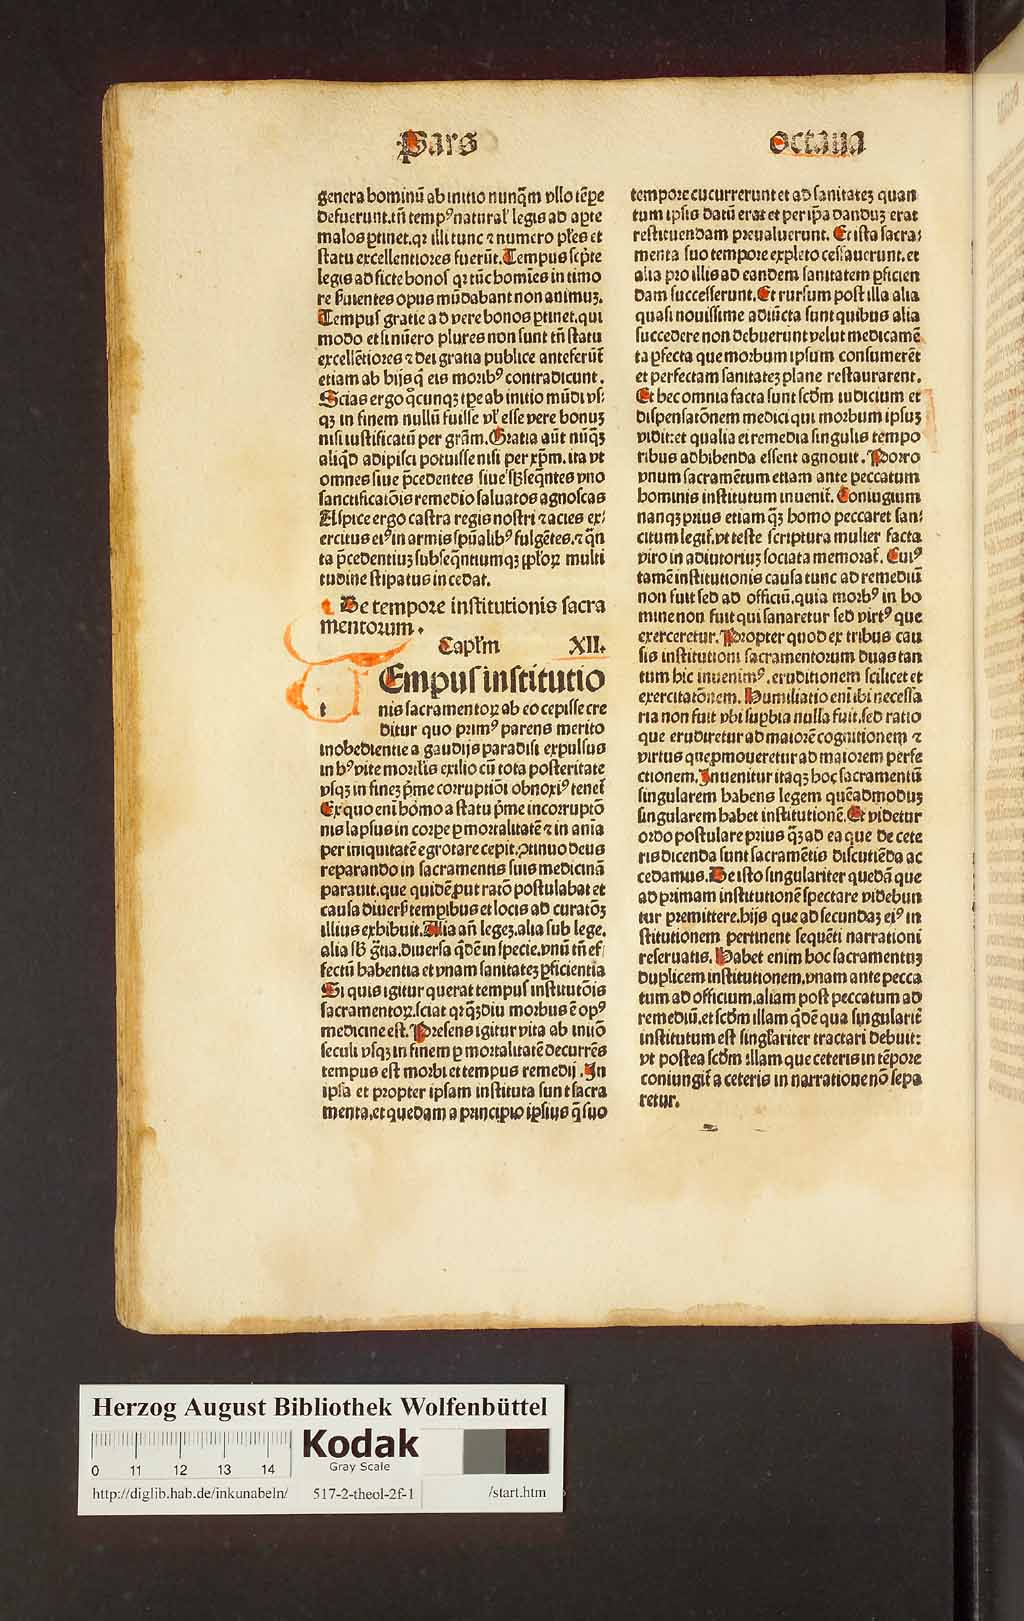 Pars octaua
genera hominū ab initio nunq̄m vllo tēpe
defuerunt.tn̄ tempꝰnatural' legis ad apte
malos ꝑtinet.qꝛ illi tunc ⁊ numero pl'es et
statu excellentiores fuerūt.Tempus sc̄pte
legis ad ficte bonos qꝛ tūc homīes in timo
re ẜuientes opus mūdabant non animuꝫ.
Tempus gratie ad vere bonos ꝑtinet.qui
modo et si nūero plures non sunt tn̄ statu
excellētiores ⁊ dei gratia publice anteferūt̄
etiam ab hijs q̄ eis moribꝰ contradicunt.
Scias ergo qͦcunqꝫ tꝑe ab initio mūdi vs⸗
qꝫ in finem nullū fuisse vl' esse vere bonuꝫ
nisi iustificatū per grām.Gratia aūt nūqꝫ̄
aliqd̄ adipisci potuisse nisi per xp̄m. ita vt
omnes siue p̄cedentes siue sb̄seqn̄tes vno
sanctificatōis remedio saluatos agnoscas
Aspice ergo castra regis nostri ⁊ acies ex⸗
ercitus eiꝰ in armis spūalibꝰ fulgētes.⁊ qn̄
ta p̄cedentiuꝫ subseq̄ntiumqꝫ pl'oꝝ multi
tudine stipatus incedat.
¶ De tempore institutionis sacra
mentorum.
Capl'm XII.
t Empus institutio
nis sacramentoꝝ ab eo cepisse cre
ditur quo primꝰ parens merito
inobedientie a gaudijs paradisi expulsus
in hꝰ vite mortalis exilio cū tota posteritate
vsqꝫ in fineꝫ p̄me corruptiōi obnoxiꝰ tenet̄
Ex quo eni hōmo a statu p̄me incorruptō
nis lapsus in corꝑe ꝑ mortalitatē ⁊ in aīa
per iniquitatē egrotare cepit.ꝯtinuo deus
reparando in sacramentis suis medicinā
parauit.que quidē ꝓut ratō postulabat et
causa diuers̄ temꝑibus et locis ad curatōꝫ
illius exhibuit.Alia an̄ legeꝫ.alia sub lege.
alia sb̄ gr̄tia.diuersa qdē in specie.vnū tn̄ ef⸗
fectū habentia et vnam sanitateꝫ ꝑficientia
Si quis igitur querat tempus institutōis
sacramentoꝝ.sciat qꝛ qꝫ̄diu morbus ē opꝰ
medicine est.Presens igitur vita ab initio
seculi vsqꝫ in finem ꝑ mortalitatē decurrēs
tempus est morbi et tempus remedij .In
ipsa et propter ipsam instituta sunt sacra
menta.et quedam a principio ipsius q̄ suo
tempore cucurrerunt et ad sanitateꝫ quan
tum ipsis datū erat et per ip̄a danduꝫ erat
restituendam preualuerunt. Et ista sacra⸗
menta suo tempore expleto cessauerunt.et
alia pro illis ad eandem sanitatem ꝑficien
dam successerunt.Et rursum post illa alia
quasi nouissime adiūcta sunt quibus alia
succedere non debuerunt velut medicamē
ta ꝑfecta que morbum ipsum consumerēt
et perfectam sanitateꝫ plane restaurarent.
Et hec omnia facta sunt scd̄m iudicium et
dispensatōnem medici qui morbum ipsuꝫ
vidit:et qualia ei remedia singulis tempo
ribus adhibenda essent agnouit. Porro
vnum sacramētum etiam ante peccatum
hominis institutum inuenit̄. Coniugium
nanqꝫ prius etiam qꝫ̄ homo peccaret san⸗
citum legit̄.vt teste scriptura mulier facta
viro in adiutoriuꝫ sociata memorat̄. Cuiꝰ
tamē institutionis causa tunc ad remediū
non fuit sed ad officiū.quia morbꝰ in ho
mine non fuit qui sanaretur sed virtꝰ que
exerceretur.Propter quod ex tribus cau
sis institutioni sacramentorum duas tan
tum hic inuenimꝰ.eruditionem scilicet et
exercitatōnem. Humiliatio eni ibi necessa
ria non fuit vbi suꝑbia nulla fuit.sed ratio
que erudiretur ad maiorē cognitionem ⁊
virtus que ꝓmoueretur ad maiorem perfe
ctionem.Inuenitur itaqꝫ hoc sacramentū
singularem habens legem quēadmoduꝫ
singularem habet institutionē.Et videtur
ordo postulare prius qꝫ̄ ad ea que de cete
ris dicenda sunt sacramētis discutiēda ac
cedamus.De isto singulariter quedā que
ad primam institutionē spectare videbun
tur premittere.hijs que ad secundaꝫ eiꝰ in
stitutionem pertinent sequēti narrationi
reseruatis. Habet enim hoc sacramentuꝫ
duplicem institutionem.vnam ante pecca
tum ad officium.aliam post peccatum ad
remediū.et scd̄m illam qdē qua singularit̄
institutum est singl'ariter tractari debuit:
vt postea scd̄m illam que ceteris in tēpore
coniungit̄ a ceteris in narratione nō sepa
retur.
Herzog August Bibliothek Wolfenbüttel
Kodak
Gray Scale
0 11 12 13 14
http://diglib.hab.de/inkunabeln/ 517-2-theol-2f-1 /start.htm